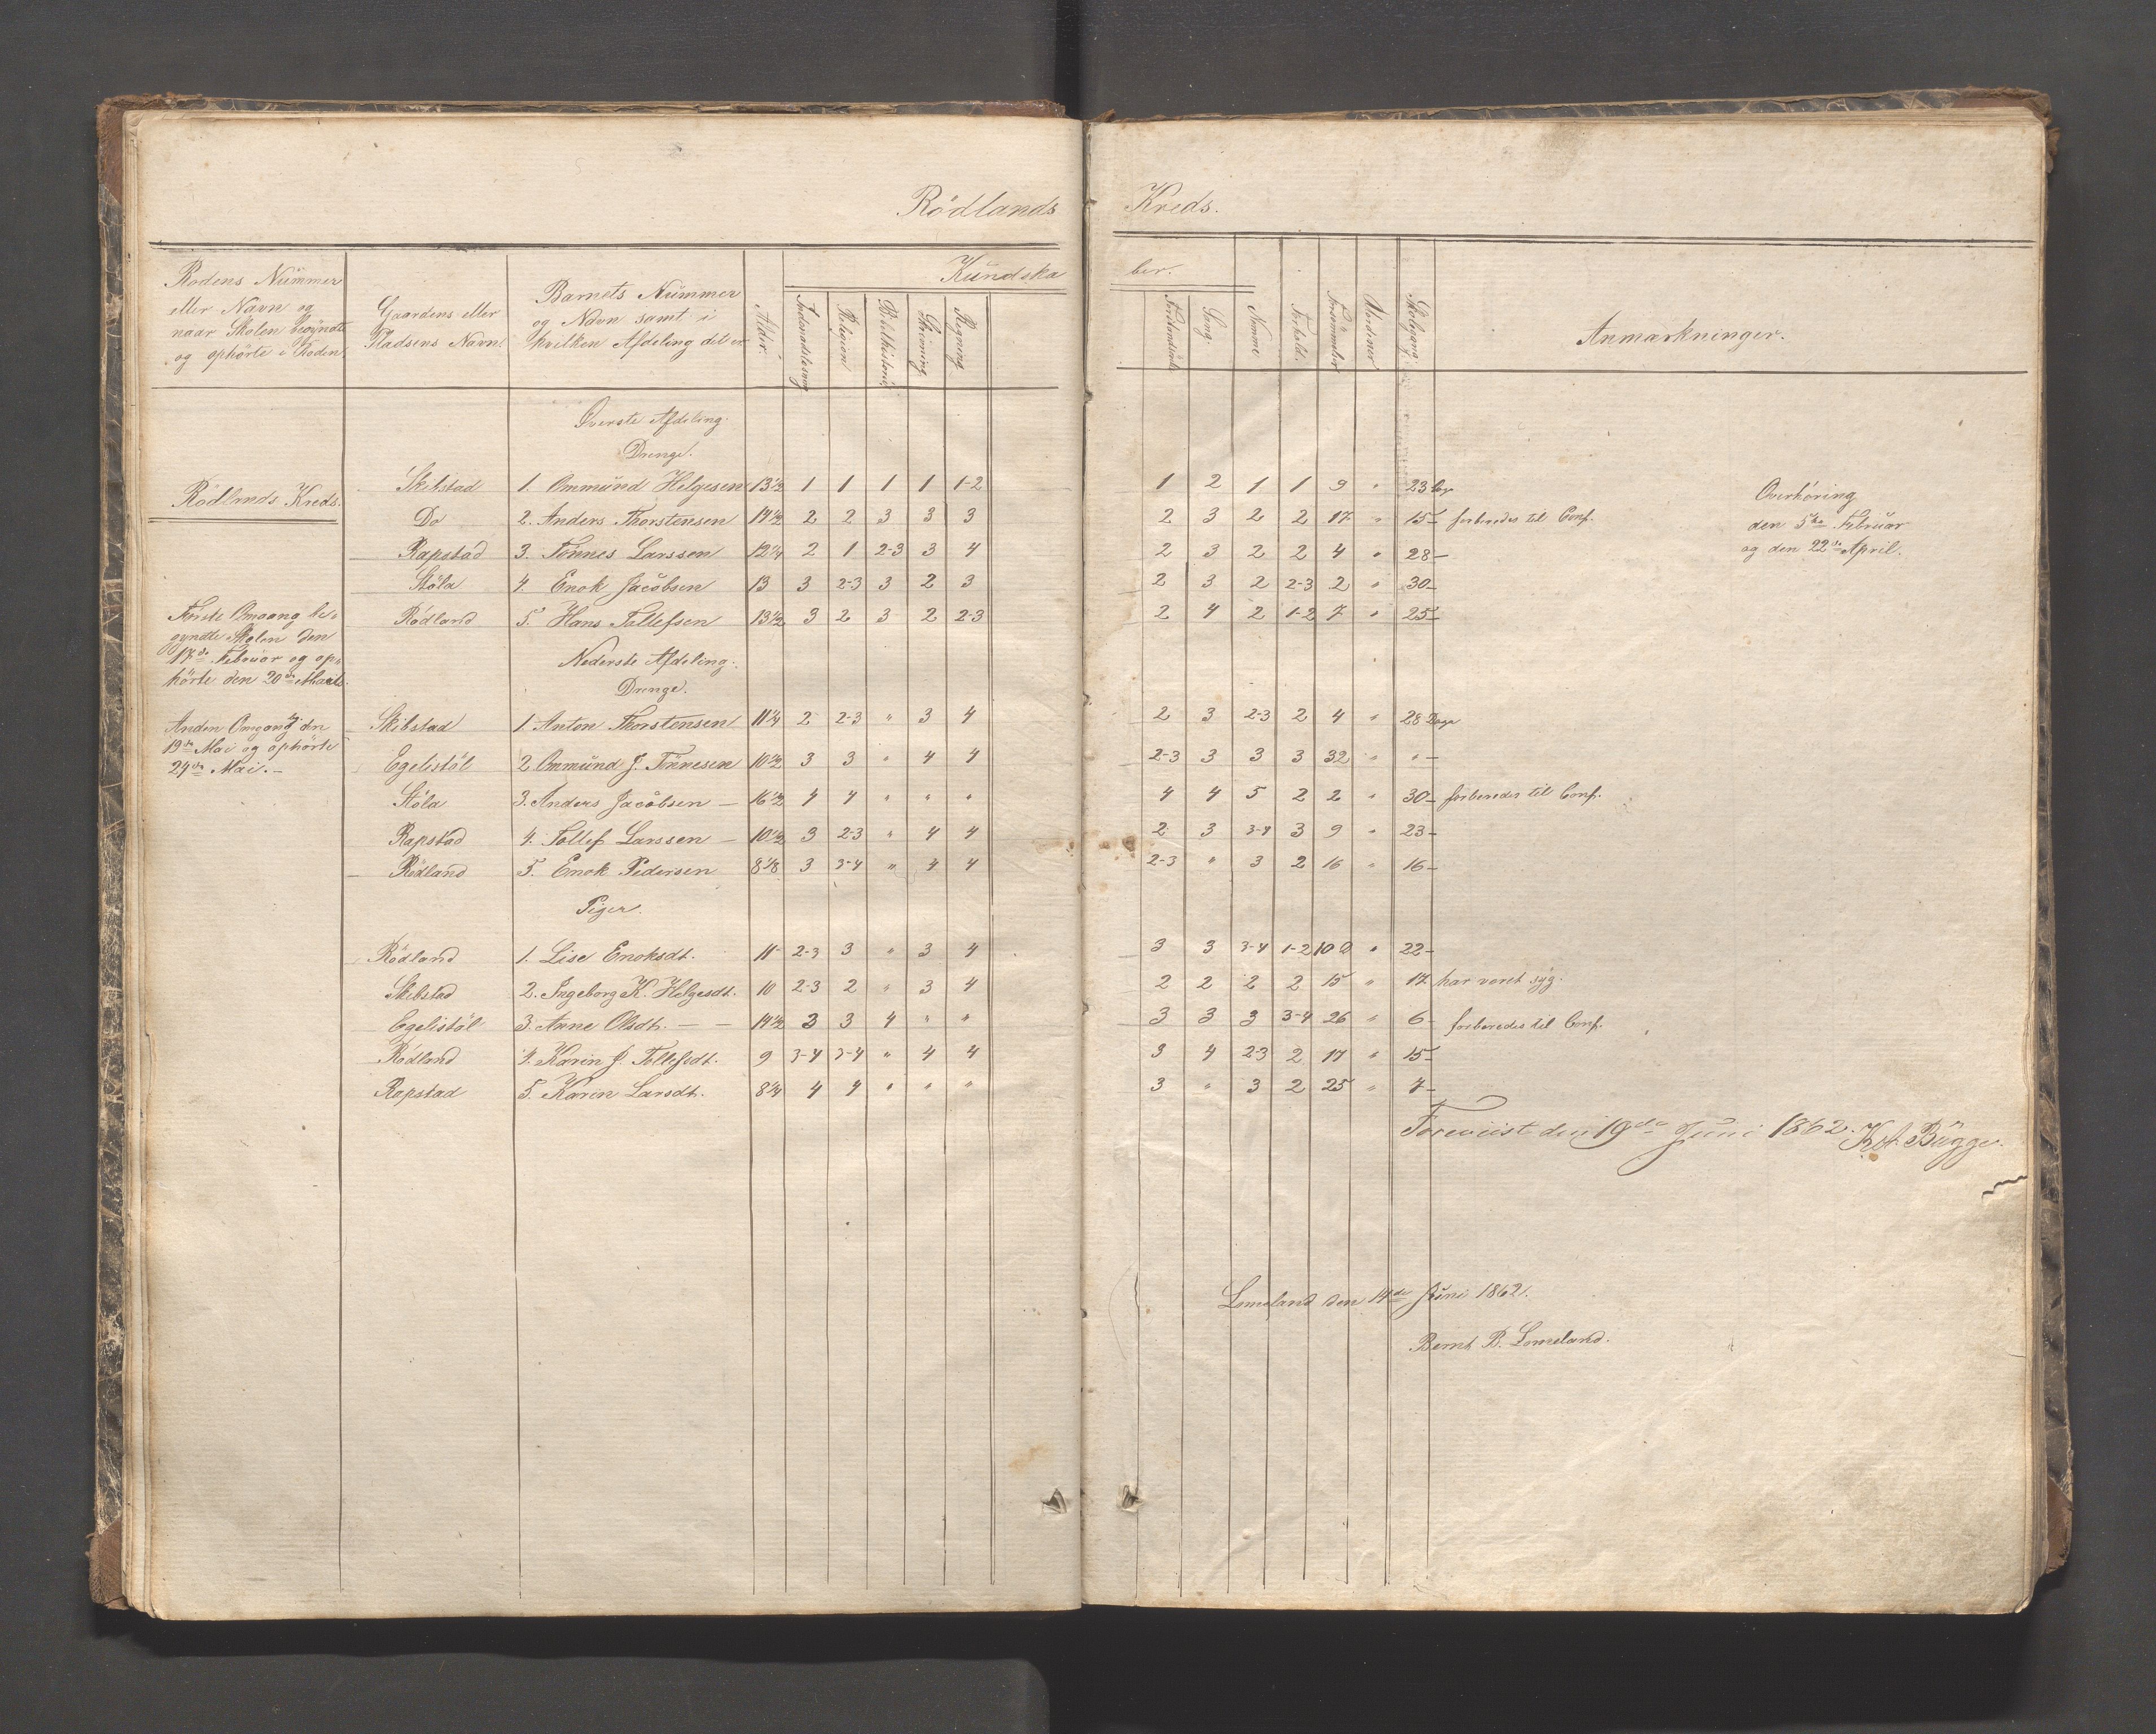 Rödlands Kreds.
Rodens Nummer
eller Navn og
naar Skolen begyndte
og ophörte i Roden.
Gaardens eller
Pladsens Navn.
Barnets Nummer
og Navn samt i
hvilken Afdeling det er
Alder.
Kundska ber.
Indenadslæsning
Religion
Bibelhistorie
Skrivning
Regning
Forstandsöv.
Sang.
Nemme
Forhold.
Forsömmelser
Skolegang
Anmærkninger.
Överste Afdeling.
Drenge.
Rödlands Kreds. Skibstad 1. Ommünd Helgesen 13 1/2 1 1 1 1 1-2 1 2 1 1 9 " 23 Dage
Do 2. Anders Thorstensen 14 1/2 2 2 3 3 3 2 3 2 2 17 " 15 – forberedes til Conf.
Rapstad 3. Tönnes Larssen 12 1/4 2 1 2-3 3 4 2 3 2 2 4 " 28 –
Stöla 4. Enok Jacobsen 13 3 2-3 3 2 3 2 3 2 2-3 2 " 30 –
Rödland 5. Hans Tollefsen 13 1/2 3 2 3 2 2-3 2 4 2 1-2 7 " 25 –
Overhöring
den 5te Februar
og den 22de April.
Förste Omgang be-
gyndte Skolen den
17de Februar og op-
hörte den 20de Marts.
Nederste Afdeling.
Drenge.
Anden Omgang den
19de Mai og ophörte
24de Mai. –
Skibstad 1. Anton Thorstensen 11 1/4 2 2-3 " 3 4 2 3 2-3 2 4 " 28 Dage
Egelistöl 2. Ommünd J. Tönnesen 10 1/2 3 3 " 4 4 2-3 3 3 3 32 " " –
Stöla 3. Anders Jacobsen – 16 1/2 4 4 " " " 4 4 5 2 2 " 30 – forberedes til Conf.
Rapstad 4. Tollef Larssen – 10 1/2 3 2-3 " 4 4 2 3 3-4 3 9 " 23 –
Rödland 5. Enok Pedersen 8 1/8 3 3-4 " 4 4 2-3 " 3 2 16 " 16 –
Piger.
Rödland 1. Lise Enoksdt. 11 2-3 3 " 3 4 3 3 3-4 1-2 10 " 22 –
Skibstad 2. Ingeborg K. Helgesdt. 10 2-3 2 " 3 4 2 2 2 2 15 " 17 har været syg.
Egelistöl 3. Anne Olsdt. – – 14 1/2 3 3 4 " " 3 3 3 3-4 26 " 6 – forberedes til Conf.
Rödland 4. Karin J. Tollefsdt. 9 3-4 3-4 " 4 4 3 4 2-3 2 17 " 15 –
Rapstad 5. Karen Larsdt. 8 1/4 4 4 " " " 3 " 3 2 25 " 7 –
Foreviist den 19de Juni 1862. Bügge.
Lomeland den 14de Juni 1862.
Bernt B. Lomeland.